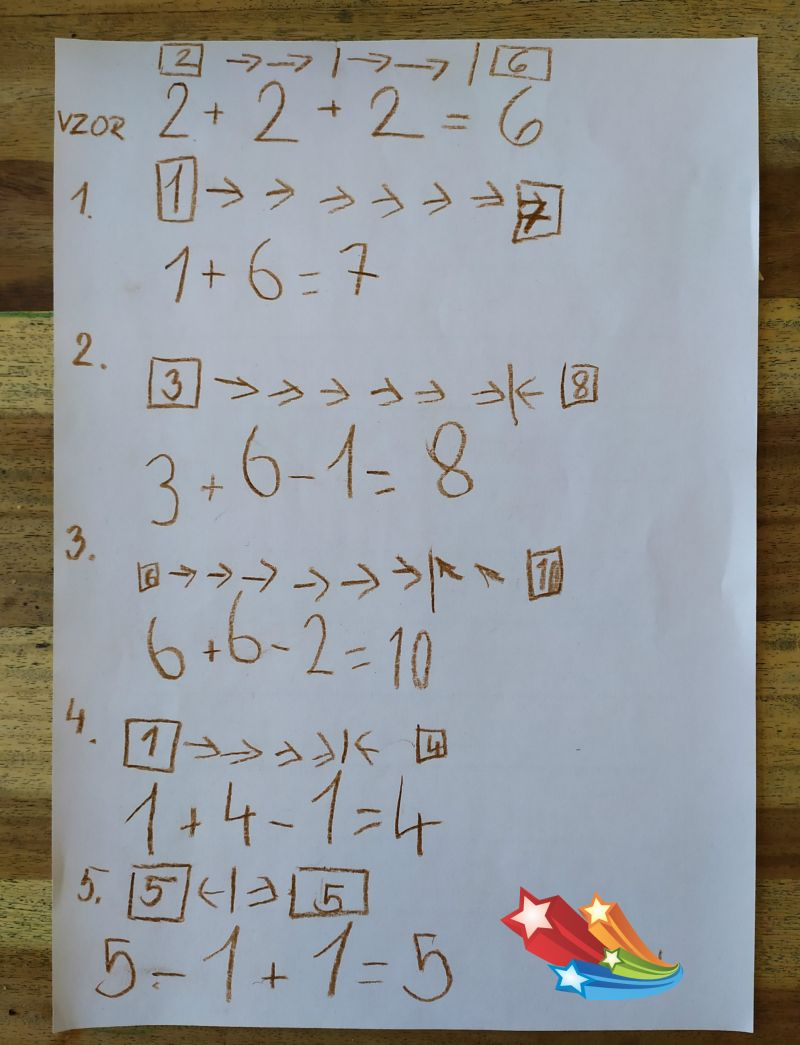 2 →→|→→| 6
VZOR 2 + 2 + 2 = 6
1. 1 →→→→→→ 7
1 + 6 = 7
2. 3 →→→→→→|← 8
3 + 6 - 1 = 8
3. 6 →→→→→→|↖↖ 10
6 + 6 - 2 = 10
4. 1 →→→→|← 4
1 + 4 - 1 = 4
5. 5 ←|→ 5
5 - 1 + 1 = 5